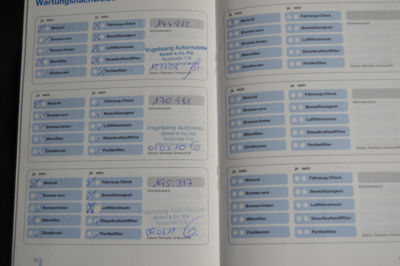 Wartungsnachweise
ja nein ja nein
Motoröl Fahrzeug-Check 144 922
Bremse vorn Bremsflüssigkeit
Bremse hinten Luftfiltereinsatz Vogelsang Automobile
Mikrofilter Dieselkraftstofffilter GmbH & Co. KG
Zündkerzen Partikelfilter
Datum, Stempel, Unterschrift
ja nein ja nein
Motoröl Fahrzeug-Check 170.981
Bremse vorn Bremsflüssigkeit Kilometerstand
Bremse hinten Luftfiltereinsatz Vogelsang Automobile
Mikrofilter Dieselkraftstofffilter GmbH & Co. KG
Zündkerzen Partikelfilter
Datum, Stempel, Unterschrift
ja nein ja nein
Motoröl Fahrzeug-Check 195.397
Bremse vorn Bremsflüssigkeit Kilometerstand
Bremse hinten Luftfiltereinsatz Vogelsang Automobile
Mikrofilter Dieselkraftstofffilter GmbH & Co. KG
Zündkerzen Partikelfilter
Datum, Stempel, Unterschrift
Motoröl Fahrzeug-Check
Bremse vorn Bremsflüssigkeit Kilometerstand
Bremse hinten Luftfiltereinsatz
Mikrofilter Dieselkraftstofffilter
Zündkerzen Partikelfilter
Datum, Stempel, Unterschrift
ja nein ja nein
Motoröl Fahrzeug-Check
Bremse vorn Bremsflüssigkeit Kilometerstand
Bremse hinten Luftfiltereinsatz
Mikrofilter Dieselkraftstofffilter
Zündkerzen Partikelfilter
Datum, Stempel, Unterschrift
ja nein ja nein
Motoröl Fahrzeug-Check
Bremse vorn Bremsflüssigkeit Kilometerstand
Bremse hinten Luftfiltereinsatz
Mikrofilter Dieselkraftstofffilter
Zündkerzen Partikelfilter
Datum, Stempel, Unterschrift